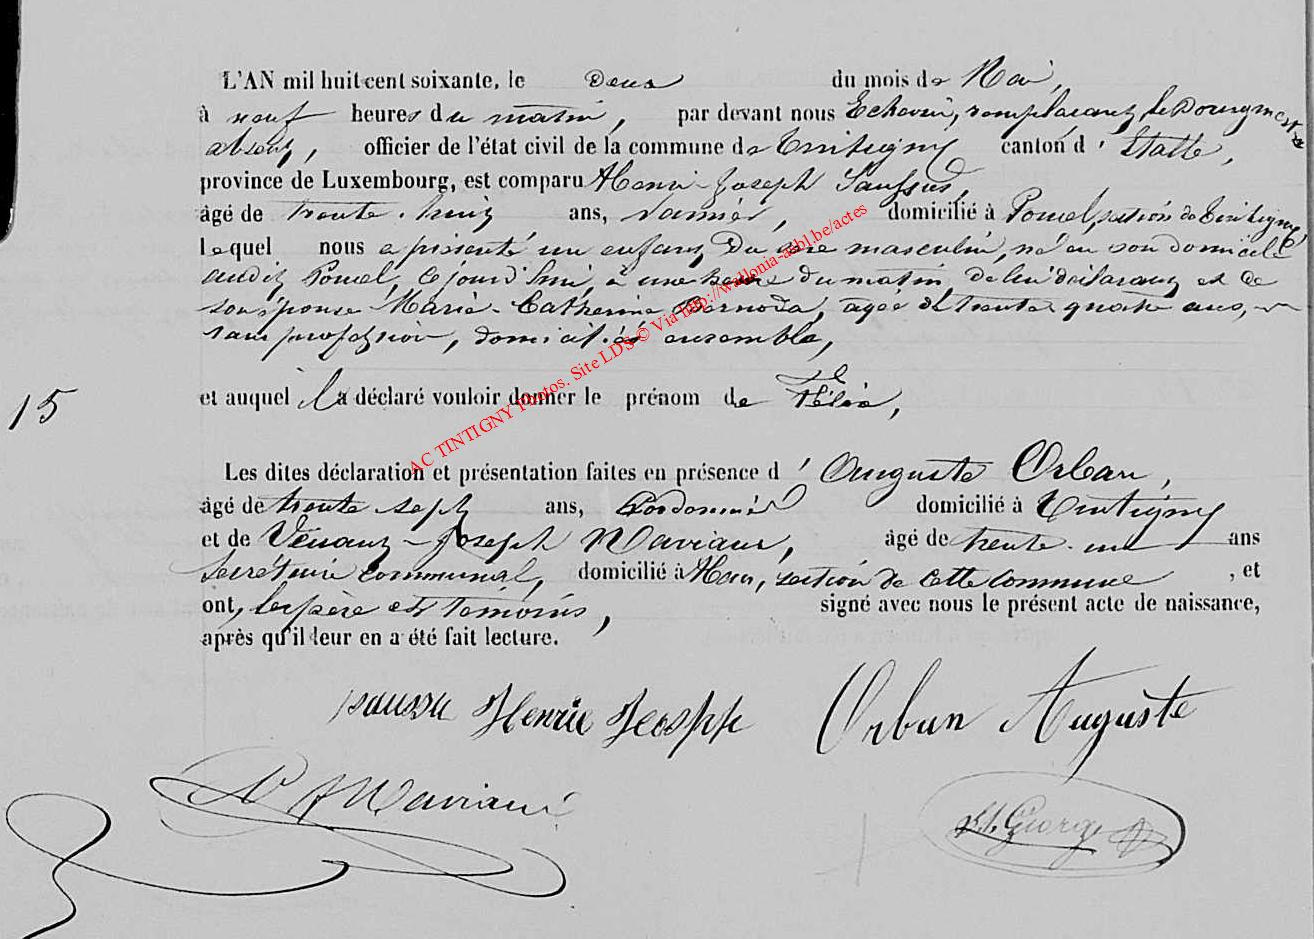 L'AN mil huit cent soixante, le deux du mois de Mai,
à neuf heures du matin, par devant nous Echevin, remplacant le Bourgmestre
absent, officier de l'état civil de la commune de Tintigny canton d'Etalle,
province de Luxembourg, est comparu Henri-Joseph
âgé de trente-huit ans, domicilié à Poncel, section de Tintigny,
lequel nous a présenté un enfant du sexe masculin, né en son domicile
audit Poncel, ce jourd'hui, à une heure du matin, de lui déclarant et de
son épouse Marie-Catherine agée de trente quatre ans,
sans profession, domiciliés ensemble,
et auquel il a déclaré vouloir donner le prénom de
15
Les dites déclaration et présentation faites en présence d'Auguste Orban,
âgé de trente sept ans, Cordonnier domicilié à Tintigny
et de Venant-Joseph Maviaux, âgé de trente-un ans
Secrétaire communal, domicilié à Han, section de cette commune, et
ont, les père et témoins, signé avec nous le présent acte de naissance,
après qu'il leur en a été fait lecture.
Henrie Orban Auguste
AC TINTIGNY Photos. Site LDS © Via http://wallonia-asbl.be/actes